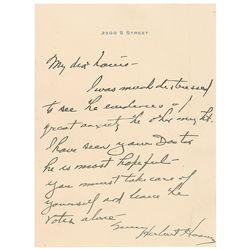 2300 S STREET
My dear Louis –
I was much distressed
to see the evidences of
great anxiety the other night.
I have seen your Doctor
he is most hopeful –
you must take care of
yourself and leave the
votes alone
Yours
Herbert Hoover